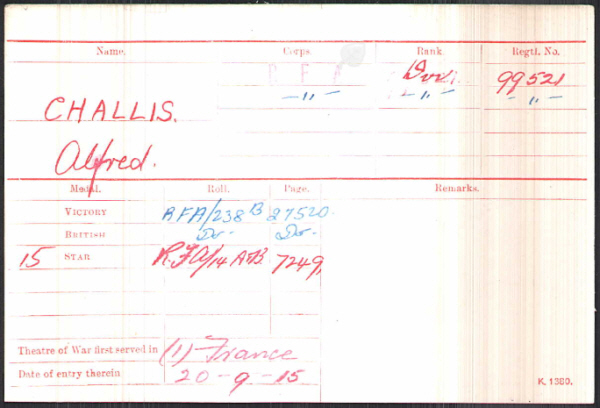 Name. Corps. Rank. Regtl. No.
R F A Dvr. 99521
—„— —„— —„—
CHALLIS.
Alfred.
Medal. Roll. Page. Remarks.
VICTORY RFA/238 B 27520.
BRITISH Do- Do-
15 STAR R.F.A/14 A+B. 7249.
Theatre of War first served in (1) France
Date of entry therein 20-9-15
K. 1380.